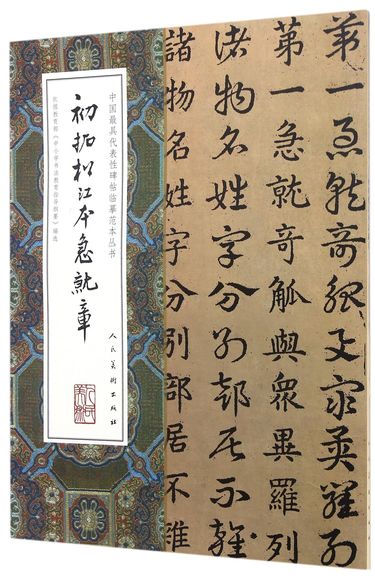 第一急就奇觚與衆異羅列
第一急就奇觚與衆異羅列
諸物名姓字分别部居不雜
諸物名姓字分別部居不雜
中国最具代表性碑帖临摹范本丛书
初拓松江本急就章
依据教育部《中小学书法教育指导纲要》编选
人民美术出版社